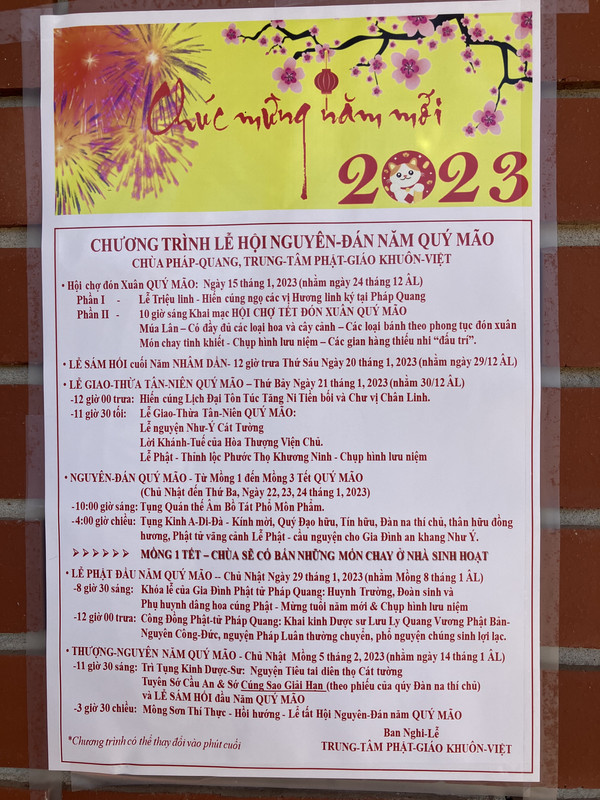 Chúc mừng năm mới
2023
CHƯƠNG TRÌNH LỄ HỘI NGUYÊN-ĐÁN NĂM QUÝ MÃO
CHÙA PHÁP-QUANG, TRUNG-TÂM PHẬT-GIÁO KHUÔN-VIỆT
• Hội chợ đón Xuân QUÝ MÃO: Ngày 15 tháng 1, 2023 (nhằm ngày 24 tháng 12 ÂL)
Phần I - Lễ Triệu linh - Hiến cúng ngọ các vị Hương linh ký tại Pháp Quang
Phần II - 10 giờ sáng Khai mạc HỘI CHỢ TẾT ĐÓN XUÂN QUÝ MÃO
Múa Lân – Có đầy đủ các loại hoa và cây cảnh – Các loại bánh theo phong tục đón xuân
Món chay tinh khiết - Chụp hình lưu niệm – Các gian hàng thiếu nhi “đấu trí”.
• LỄ SÁM HỐI cuối Năm NHÂM DẦN- 12 giờ trưa Thứ Sáu Ngày 20 tháng 1, 2023 (nhằm ngày 29/12 ÂL)
• LỄ GIAO-THỪA TÂN-NIÊN QUÝ MÃO – Thứ Bảy Ngày 21 tháng 1, 2023 (nhằm 30/12 ÂL)
-12 giờ 00 trưa: Hiến cúng Lịch Đại Tôn Túc Tăng Ni Tiền bối và Chư vị Chân Linh.
-11 giờ 30 tối: Lễ Giao-Thừa Tân-Niên QUÝ MÃO:
Lễ nguyện Như-Ý Cát Tường
Lời Khánh-Tuế của Hòa Thượng Viện Chủ.
Lễ Phật - Thỉnh lộc Phước Thọ Khương Ninh - Chụp hình lưu niệm
• NGUYÊN-ĐÁN QUÝ MÃO - Từ Mồng 1 đến Mồng 3 Tết QUÝ MÃO
(Chủ Nhật đến Thứ Ba, Ngày 22, 23, 24 tháng 1, 2023)
-10:00 giờ sáng: Tụng Quán thế Âm Bồ Tát Phổ Môn Phẩm.
-4:00 giờ chiều: Tụng Kinh A-Di-Đà - Kính mời, Quý Đạo hữu, Tín hữu, Đàn na thí chủ, thân hữu đồng
hương, Phật tử vãng cảnh Lễ Phật - cầu nguyện cho Gia Đình an khang Như Ý.
➢➢➢➢➢➢ MỒNG 1 TẾT – CHÙA SẼ CÓ BÁN NHỮNG MÓN CHAY Ở NHÀ SINH HOẠT
• LỄ PHẬT ĐẦU NĂM QUÝ MÃO -- Chủ Nhật Ngày 29 tháng 1, 2023 (nhằm Mồng 8 tháng 1 ÂL)
-8 giờ 30 sáng: Khóa lễ của Gia Đình Phật tử Pháp Quang: Huynh Trưởng, Đoàn sinh và
Phụ huynh dâng hoa cúng Phật - Mừng tuổi năm mới & Chụp hình lưu niệm
-12 giờ 00 trưa: Công Đồng Phật-tử Pháp Quang: Khai kinh Dược sư Lưu Ly Quang Vương Phật Bản-
Nguyên Công-Đức, nguyện Pháp Luân thường chuyển, phổ nguyện chúng sinh lợi lạc.
• THƯỢNG-NGUYÊN NĂM QUÝ MÃO - Chủ Nhật Mồng 5 tháng 2, 2023 (nhằm ngày 14 tháng 1 ÂL)
-11 giờ 30 sáng: Trì Tụng Kinh Dược-Sư: Nguyện Tiêu tai diên thọ Cát tường
Tuyên Sớ Cầu An & Sớ Cúng Sao Giải Hạn (theo phiếu của qúy Đàn na thí chủ)
và LỄ SÁM HỐI đầu Năm QUÝ MÃO
-3 giờ 30 chiều: Mông Sơn Thí Thực - Hồi hướng - Lễ tất Hội Nguyên-Đán năm QUÝ MÃO
Ban Nghi-Lễ
*Chương trình có thể thay đổi vào phút cuối TRUNG-TÂM PHẬT-GIÁO KHUÔN-VIỆT